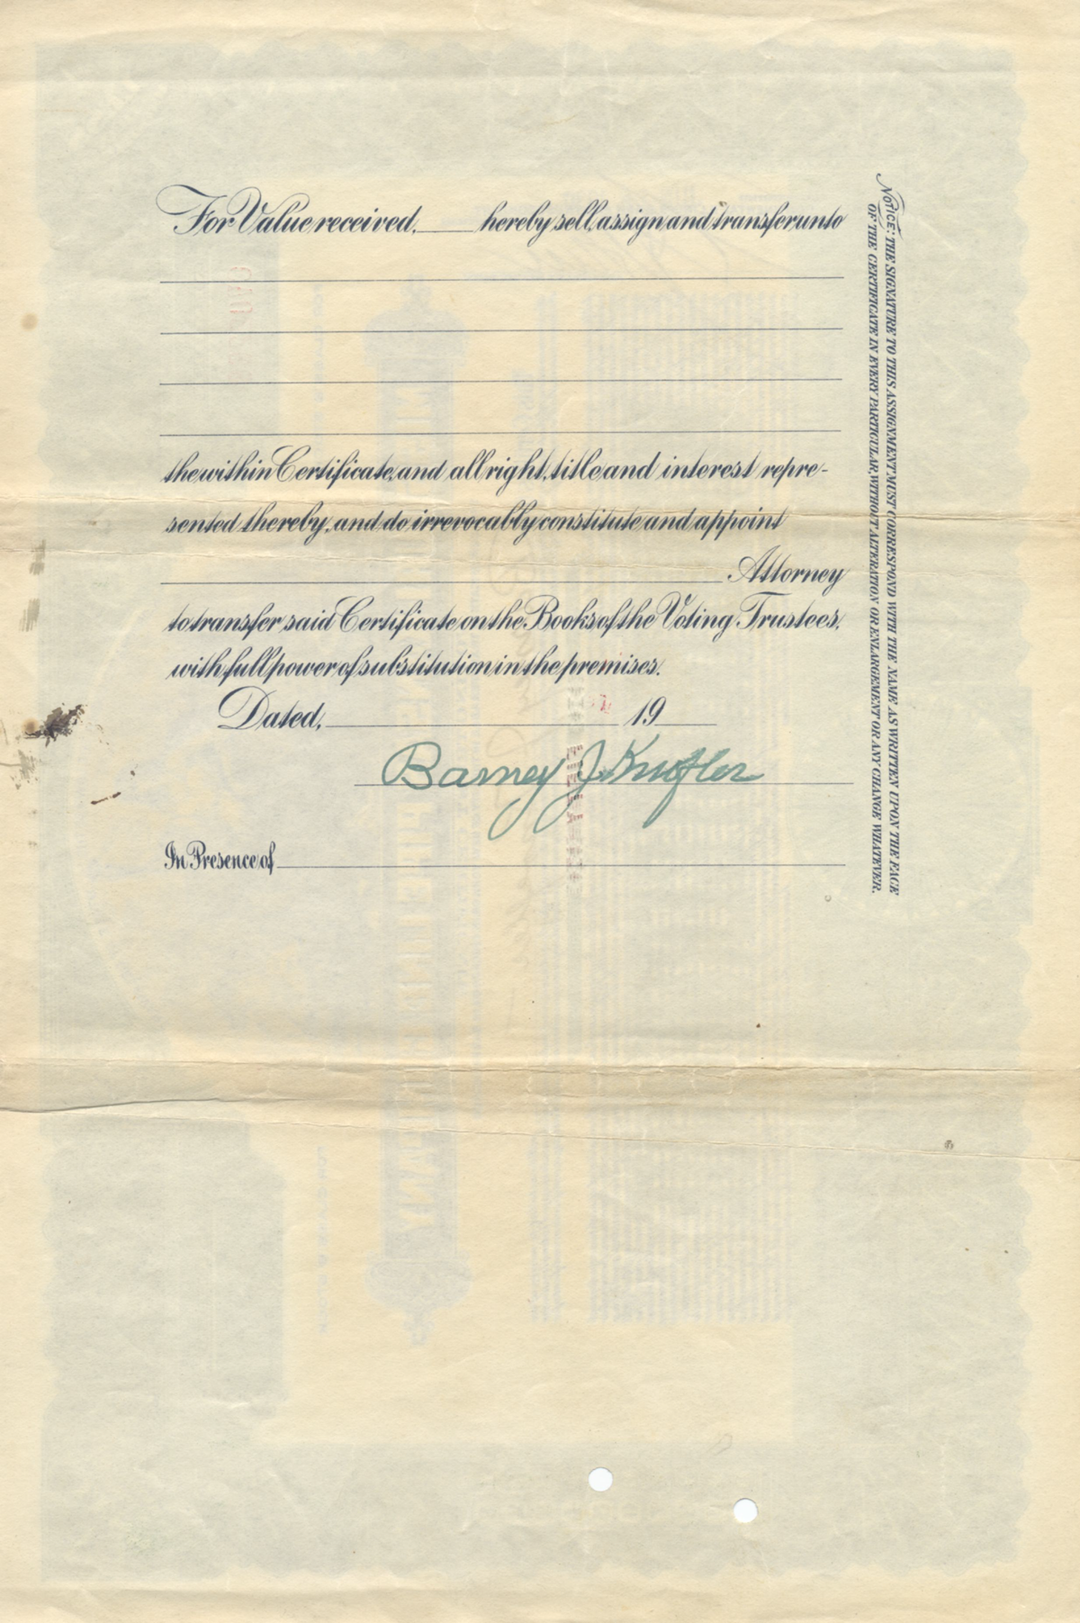 For Value received, ____ hereby sell, assign and transfer unto
the within Certificate, and all right, title and interest repre-
sented thereby, and do irrevocably constitute and appoint
Attorney
to transfer said Certificate on the Books of the Voting Trustees,
with full power of substitution in the premises.
Dated, ____ 19____
Barney J.
In Presence of
NOTICE: THE SIGNATURE TO THIS ASSIGNMENT MUST CORRESPOND WITH THE NAME AS WRITTEN UPON THE FACE
OF THE CERTIFICATE IN EVERY PARTICULAR, WITHOUT ALTERATION OR ENLARGEMENT OR ANY CHANGE WHATEVER.